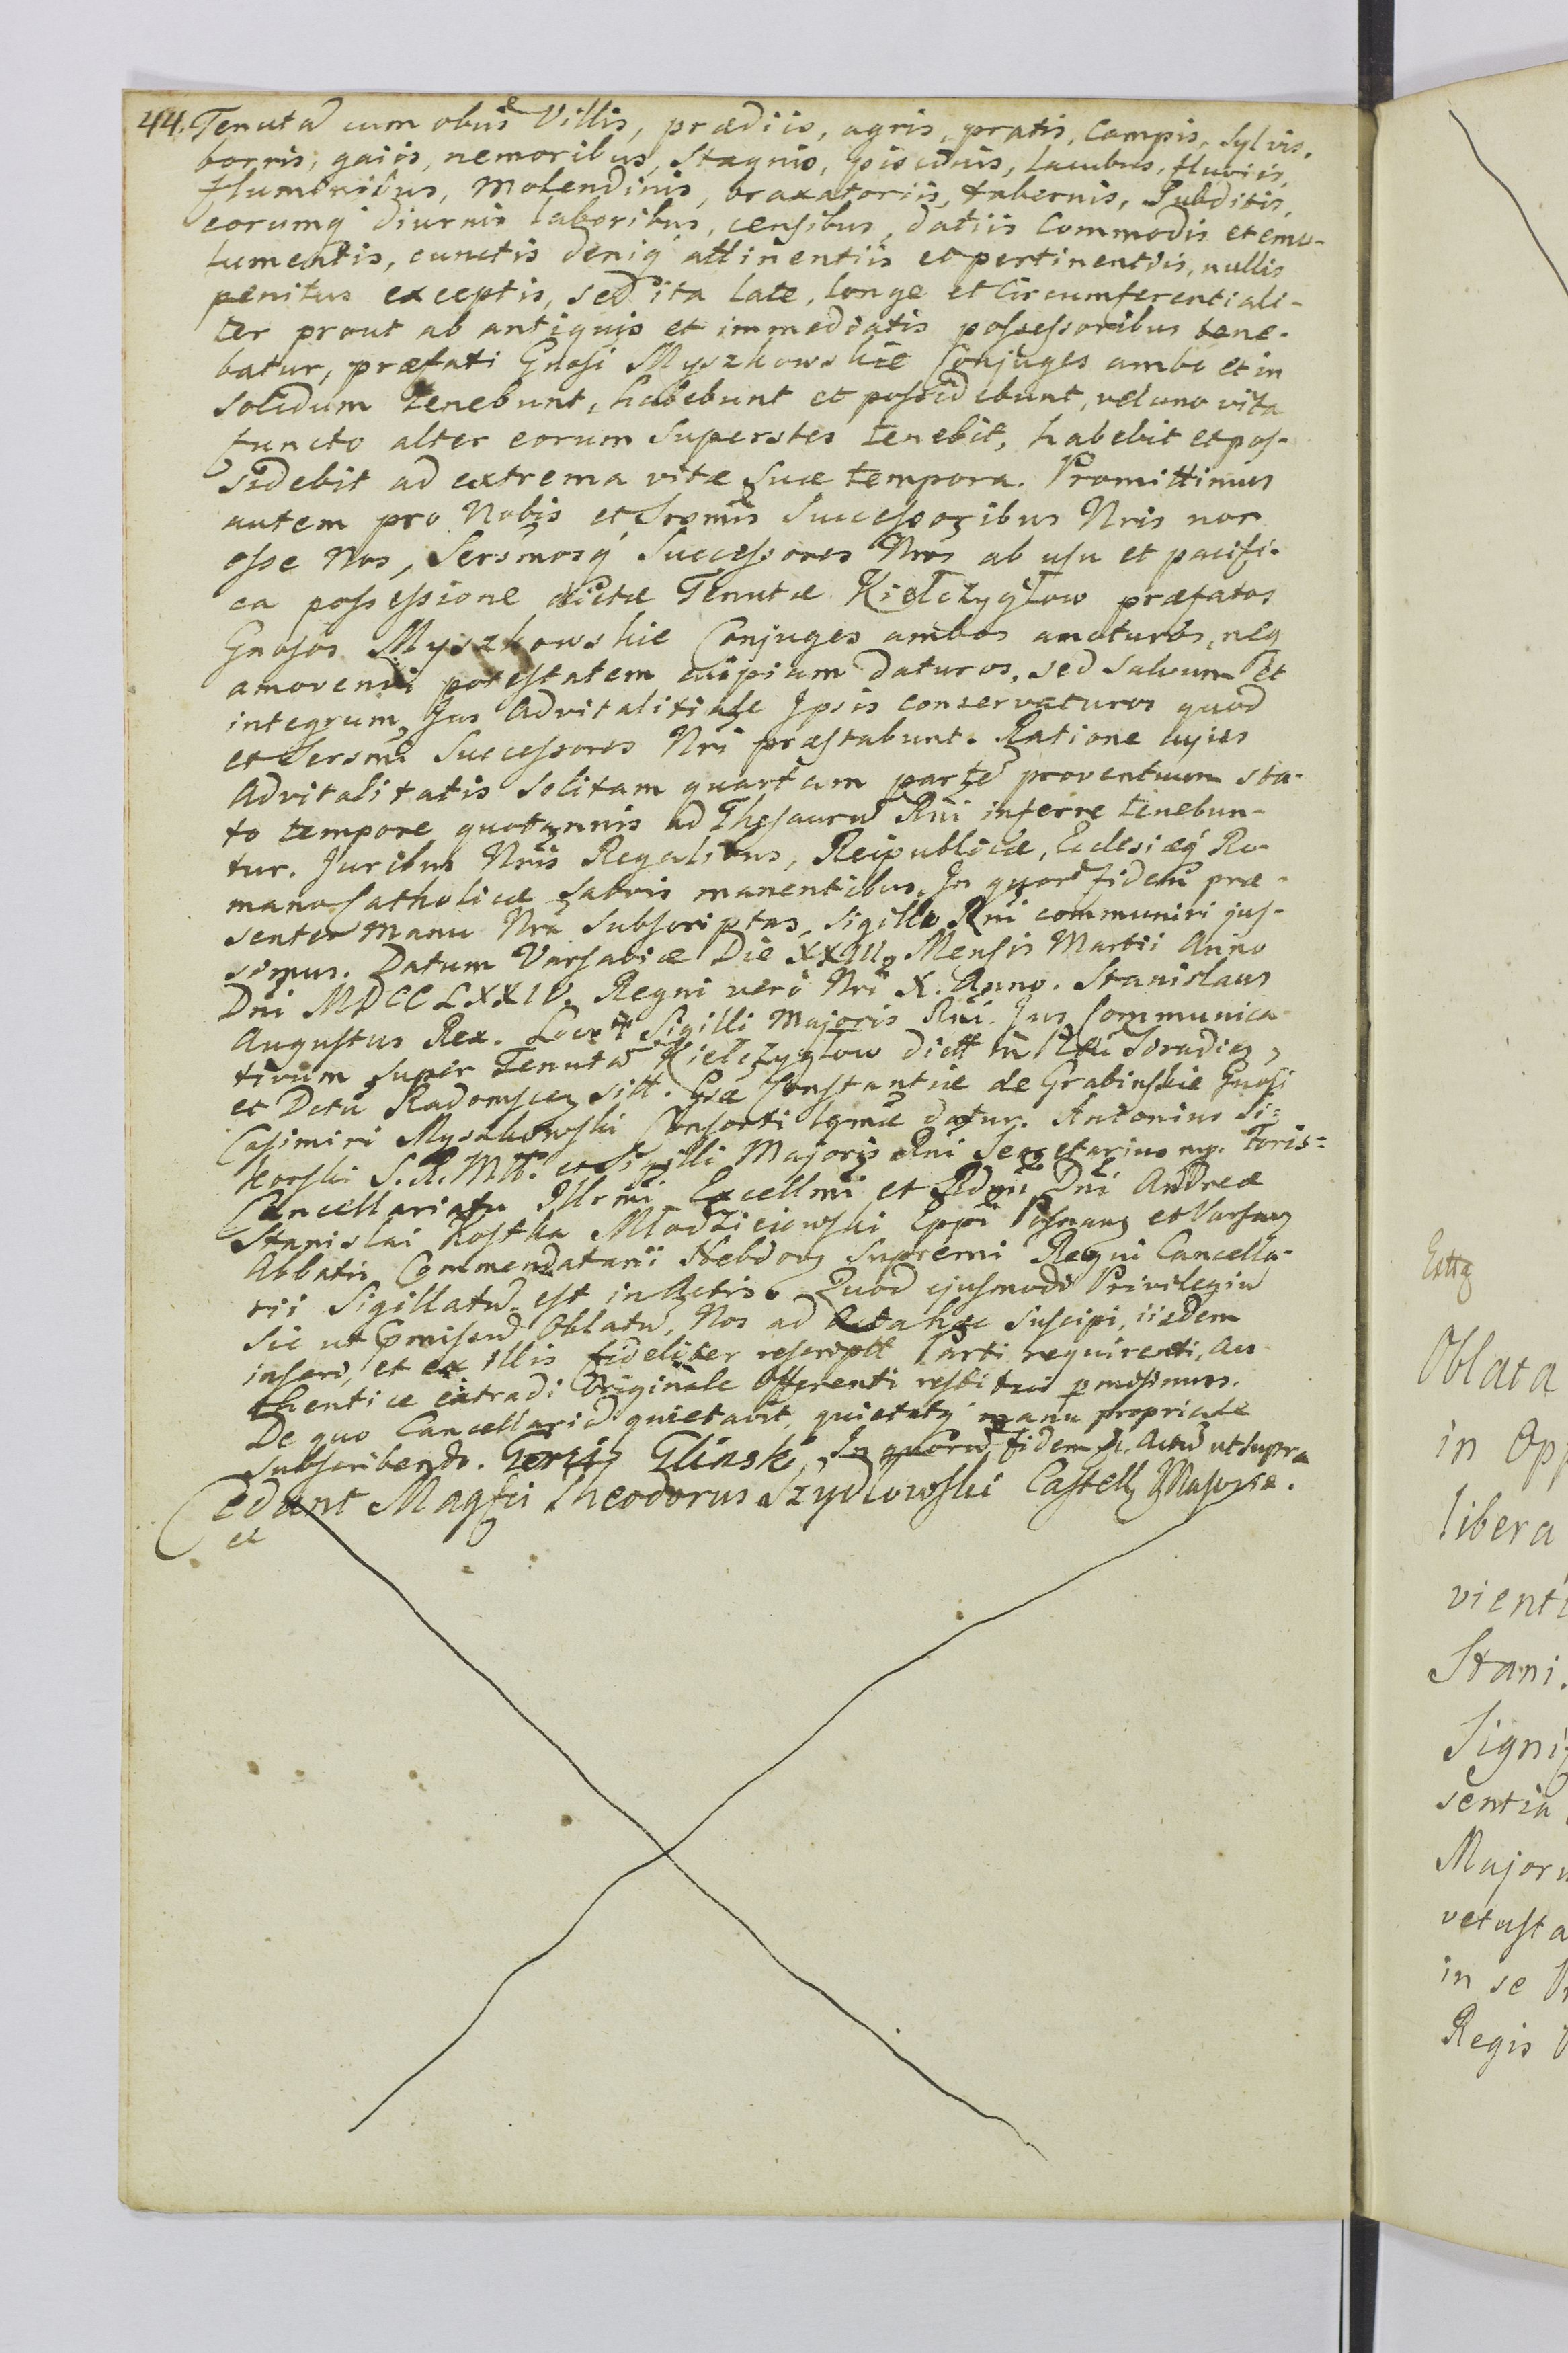 44. Tenutã cum oibus Villis, prædiis, agris, pratis, Campis, Sylvis,
borris, gaiis, nemoribus, Stagnis, piscinis, lacubus, fluviis,
fluminibus, Molendinis, braxatoriis, tabernis, Subditis,
eorumq́ diurnis laboribus, censibus, datiis Commodis et emo-
lumentis, cunctis deniq́ attinentiis et pertinentiis, nullis
penitus exceptis, sed ita late, longe et Circumferentiali-
ter prout ab antiquis et immediatis possessoribus tene-
batur, præfati Gnosi Myszkowskie Conjuges ambo et in
solidum tenebunt, habebunt et possidebunt, vel uno vita
functo alter eorum Superstes tenebit, habebit et pos-
sidebit ad extrema vitæ Suæ tempora. Promittimus
autem pro Nobis et Srsmis Successoribus Nris non
esse Nos, Sersmosq́ Successores Nros ab usu et pacifi-
ca possessione dictæ Tenutæ Kiełczygłow præfatos
Gnosos Myszkowskie Conjuges ambos amoturos, neq
amovendi potestatem cuipiam daturos, sed Salvum et
integrum Jus Advitalitiale Ipsis conservaturos quod
et Sersmi Successores Nri præstabunt. Ratione cujus
Advitalitatis Solitam quartam partẽ proventuum sta-
to tempore quotannis ad Thesaurũ Rni inferre tenebun-
tur. Juribus Nris Regalibus, Reipublicæ, Ecclesiæq́ Ro-
mano Catholicæ Salvis manentibus. In quorũ fidem præ-
sentes Manu Nra Subscriptas, Sigillo Rni communiri jus-
simus. Datum Varsaviæ Die XXIII Mensis Martii Anno
Dni MDCCLXXIV. Regni vero Nri X. Anno. Stanislaus
Augustus Rex. Locus Sigilli Majoris Rni. Jus Communica-
tivum Super Tenutã Kiełczygłow dictt in Siradien,
et Dctu Radomscen sitt. Gsæ Constantiæ de Grabinskie Gnosi
Casimiri Myszkowski Consorti lgmæ datur. Antonius Si=
korski S. R. Mtt. et Sigilli Majoris Rni Secretarius mp.
Cancellariatu Illrmi Excellmi et Rdmi Dni Andreæ
Stanislai Kostka Młodzieiowski Eppi Posnanz et Varsavz
Abbatis Commendatarii Hebdovz Supremi Regni Cancella-
rii Sigillatũ est in Actis. Quod ejusmodi Privilegiũ
Sic ut Oblatũ, Nos ad Acta hæc Suscipi, iisdem
inseri, et ex illis fideliter rescriptt Parti requirenti, au-
thentice extradi Originale Offerenti restitui
De quo Cancellariã quietavit, quietatq́ manu propria
Subscribendo. Glinski, In quorũ fidem Actũ ut supra
Cedant Magfci Theodorus Szydłowski Castell, Masoviæ.
et
Extrz
Oblata
in Opp
libera
vienti
Stani.
Signi
sentia
Majoru
vetusta
in se
Regis